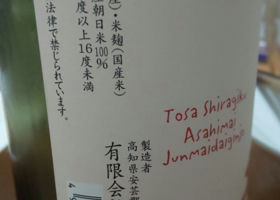 産)・米麹(国産米)
産朝日米100%
度以上16度未満
法律で禁じられています。
製造者
高知県安芸郡
有限会
Tosa Shiragiku
Asahimai
Junmaidaiginjo